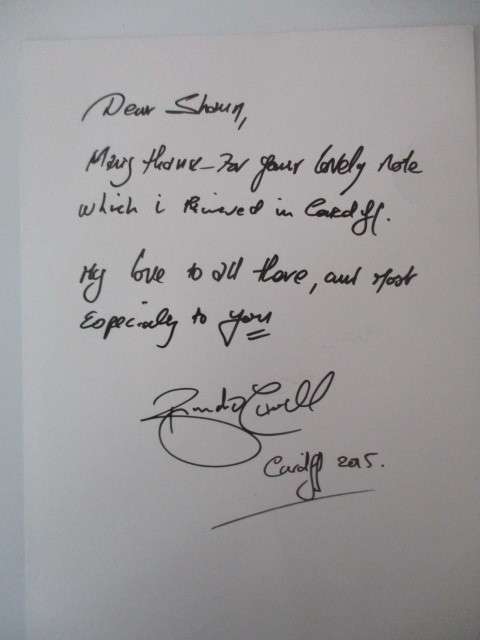 Dear Shaun,
Many thanks for your lovely note
which i received in Cardiff.
My love to all there, and most
Especially to you
Cardiff 2015.